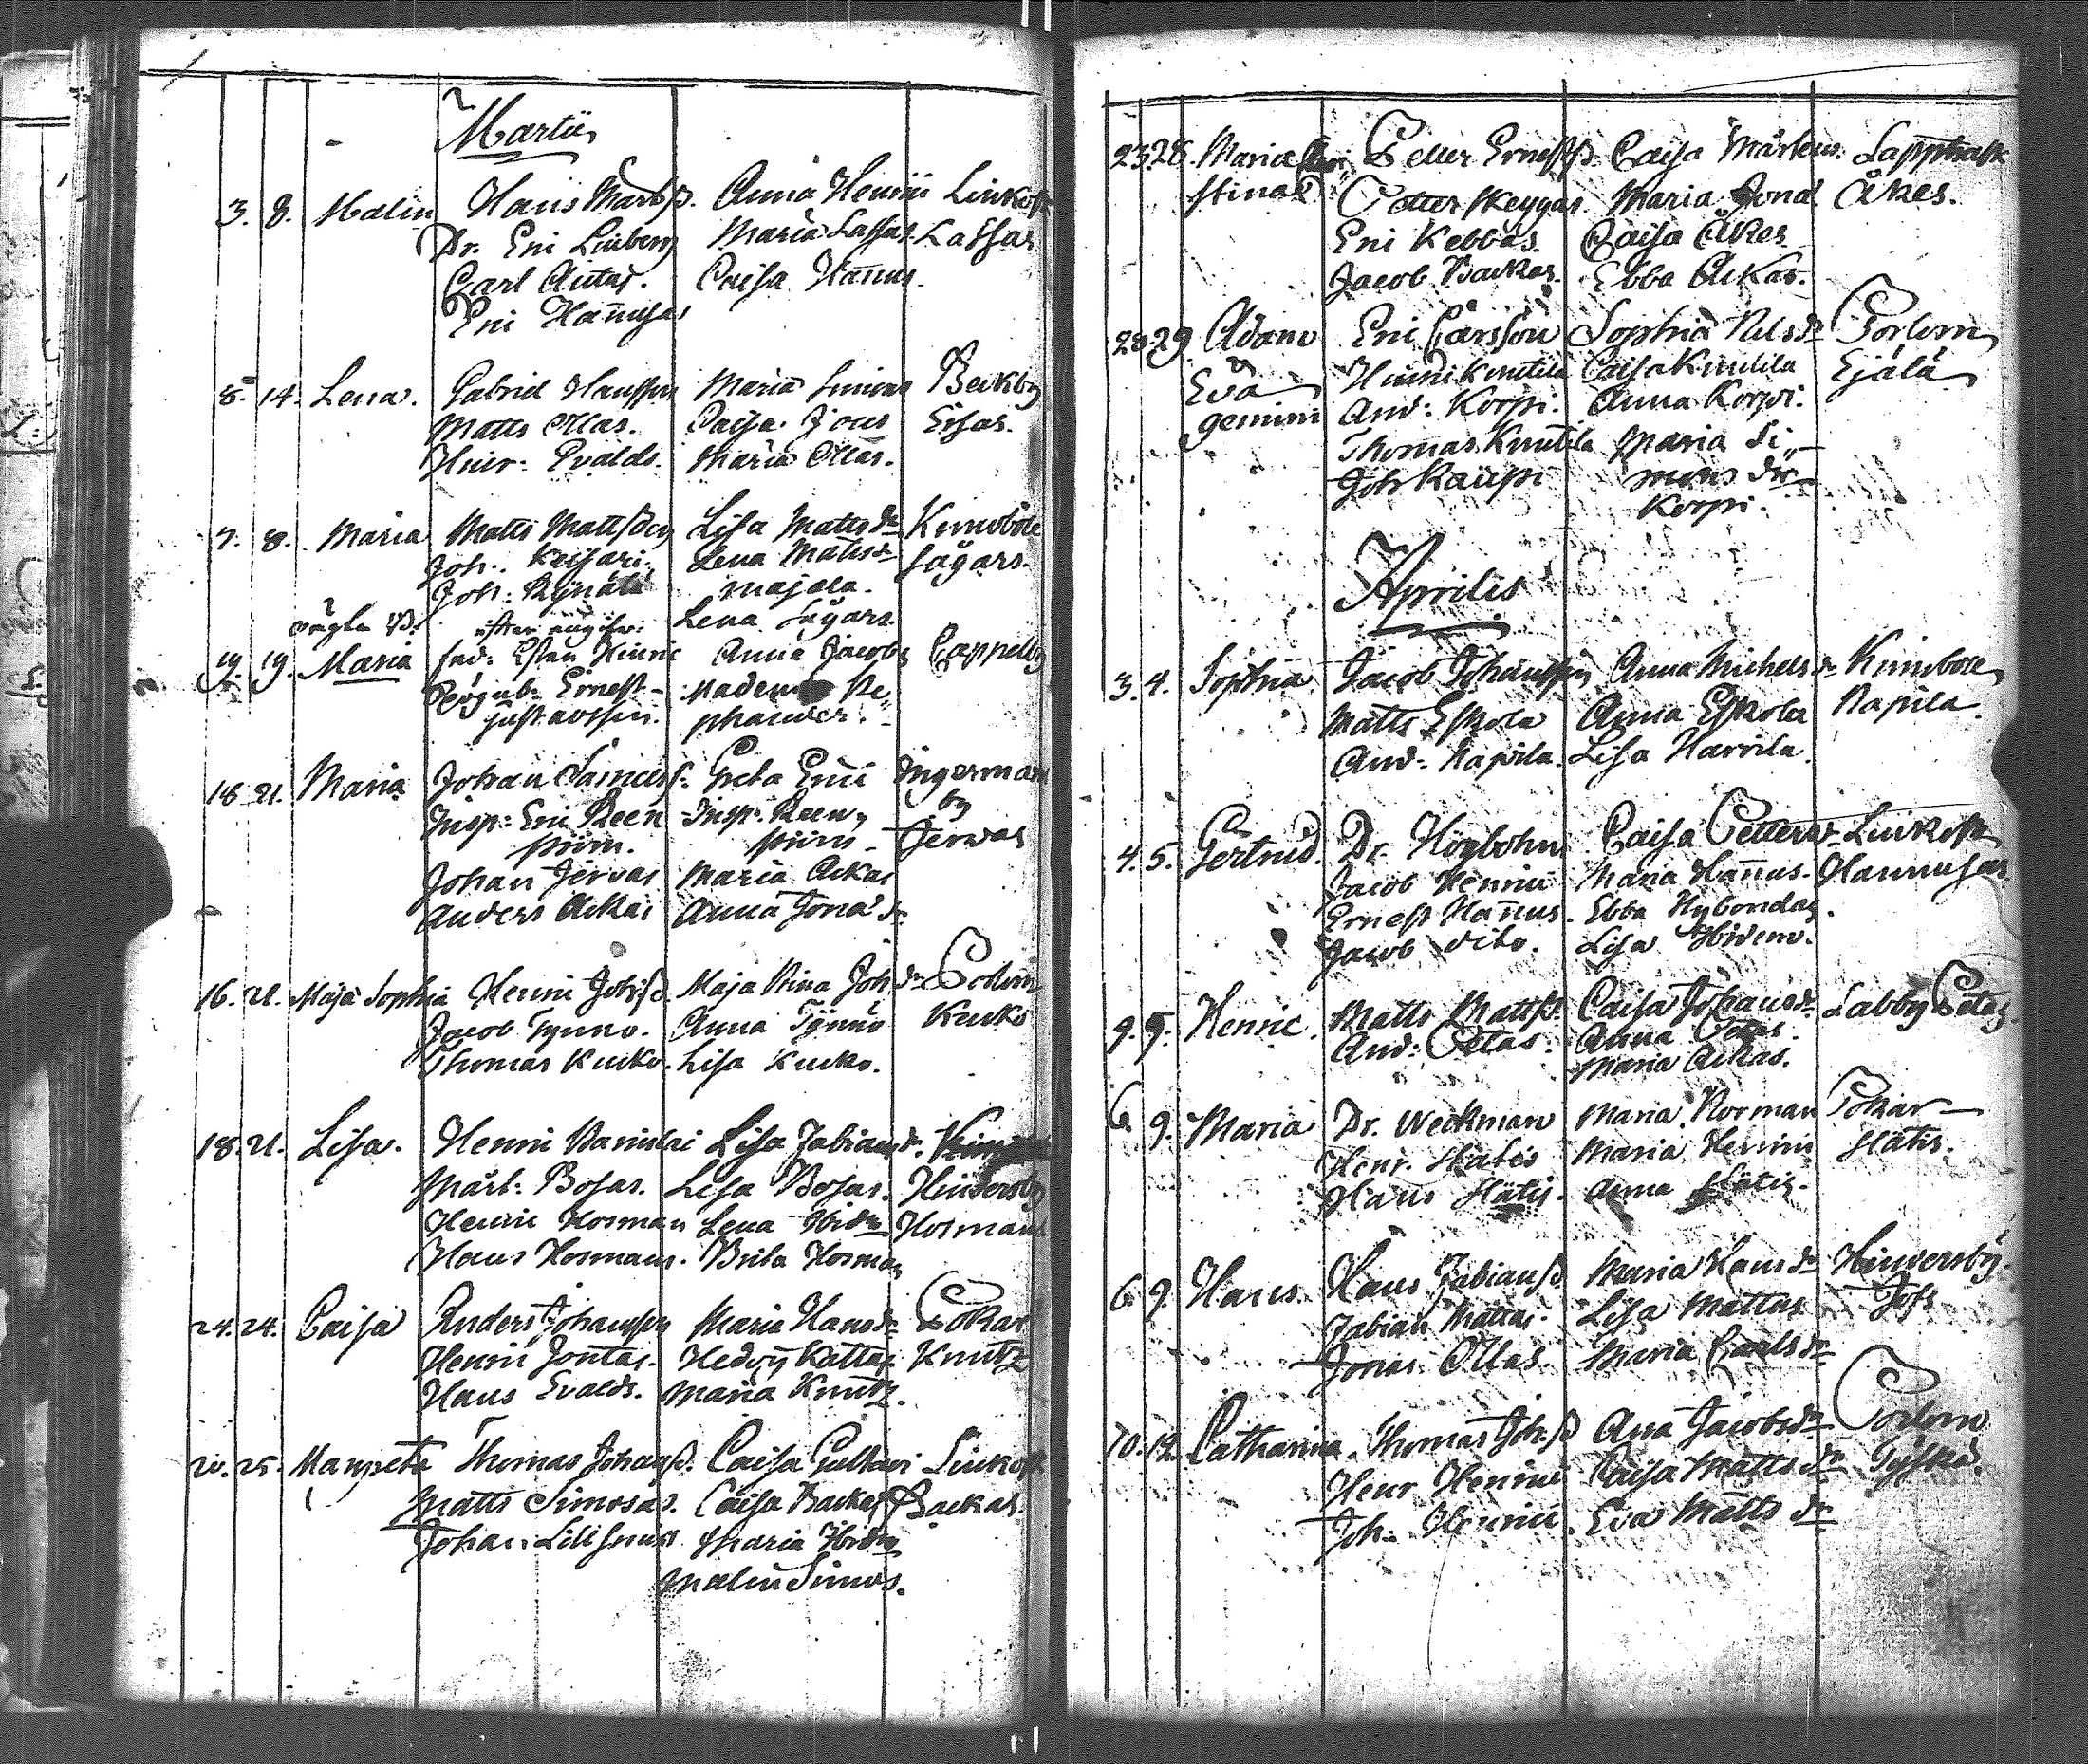 Martii
3. 8. Malin Hans Marts β. Anna Henrici Linkosk
Dr. Eric Linberg Maria Lassas Lassas
Carl Antas. Caisa Hannus.
Eric Hannusas
8. 14. Lena. Gabriel Hansson Maria Simons Beckby
Matts Ollas. Caisa Jous Eisas.
Henr: Evalds. Maria Ollas.
7. 8. Maria Matts Mattsson Lisa Matts dr Kimoböle
Joh: Keisari. Lena Matts dr Sågars.
Joh: majala.
Lena Sågars.
19. 19. Maria Enric Anna Jacobs Cappelby
Ernest
gustavsson.
18 21. Maria Johan Greta Eric Ingerman
Insp: Eric Reen Insp: Reen by
stiern. stiern Jervas
Johan Jervas Maria Ackas
Anders Ackas Anna Jona dr
16. 21. Maja Sophia Henric Johsβ. Maja Stina Joh dr Porlom
Jacob Tynno. Anna Tynno Kucko
Thomas Kucko. Lisa Kucko.
18. 21. Lisa. Henric Lisa Fabians dr.
Mårt: Bosas. Lisa Bosas. Hindersby
Henric Hosman Lena Hosmans
Hans Hosmans. Brita Hosman
24. 24. Caisa Anders Johansson Maria Hans dr Pokar
Henric Jontas. Hedvig Kattas Knutz
Hans Evalds. Maria Knutz.
20. 25. Margeta Thomas Johansβ. Caisa Gustavi Linkosk
Matts Simosas. Caisa Backas Backas
Johan Maria
Malin Simos.
23. 28. Maria Chri Petter Ernestsβ. Caisa Mårtens. Lappträsk
stina Petter Skeggas. Maria Jond Åkes.
Eric Kebbas. Caisa Åkes
Jacob Backas. Ebba Ackas.
28 29 Adam Eric Larsson Sophia Nils dr Porlom
Eva Hinric Knutila Caisa Knutila Ejälä
gemini And: Korpi. Anna Korpi.
Thomas Knutila Maria Si
Joh Kaupi mons dr
Korpi.
Aprilis
3. 4. Sophia Jacob Johansson Anna Michels dr Kimoböle
Matts Eskola Anna Eskola Rapila
And: Rapila. Lisa Harvila.
4. 5. Gertrud. Dr. Högbohm Caisa Petters Linkosk
Jacob Henric Maria Hannus. Hannusas
Ernest Hannus. Ebba Nybondas.
Jacob dito. Lisa
9. 9. Henric. Matts Mattsβ. Caisa Johans dr Labby Petas
And: Petas. Anna Petas.
Maria Ackas.
6. 9. Maria Dr. Weckman Maria Norman Pokar
Henr. Hätis Maria Henrics Hätis.
Hans Hätis. Anna Hätis.
6. 9. Hans. Hans Fabiansβ. Maria Hans dr Hindersby
Fabian Mattas. Lisa Mattas Jofs
Jonas Ollas Maria Carls dr
10. 12. Catharina. Thomas Joh.β Ana Jacobs dr Porlom
Henr Henric Caisa Matts dr Tyskä.
Joh. Henric. Eva Matts dr